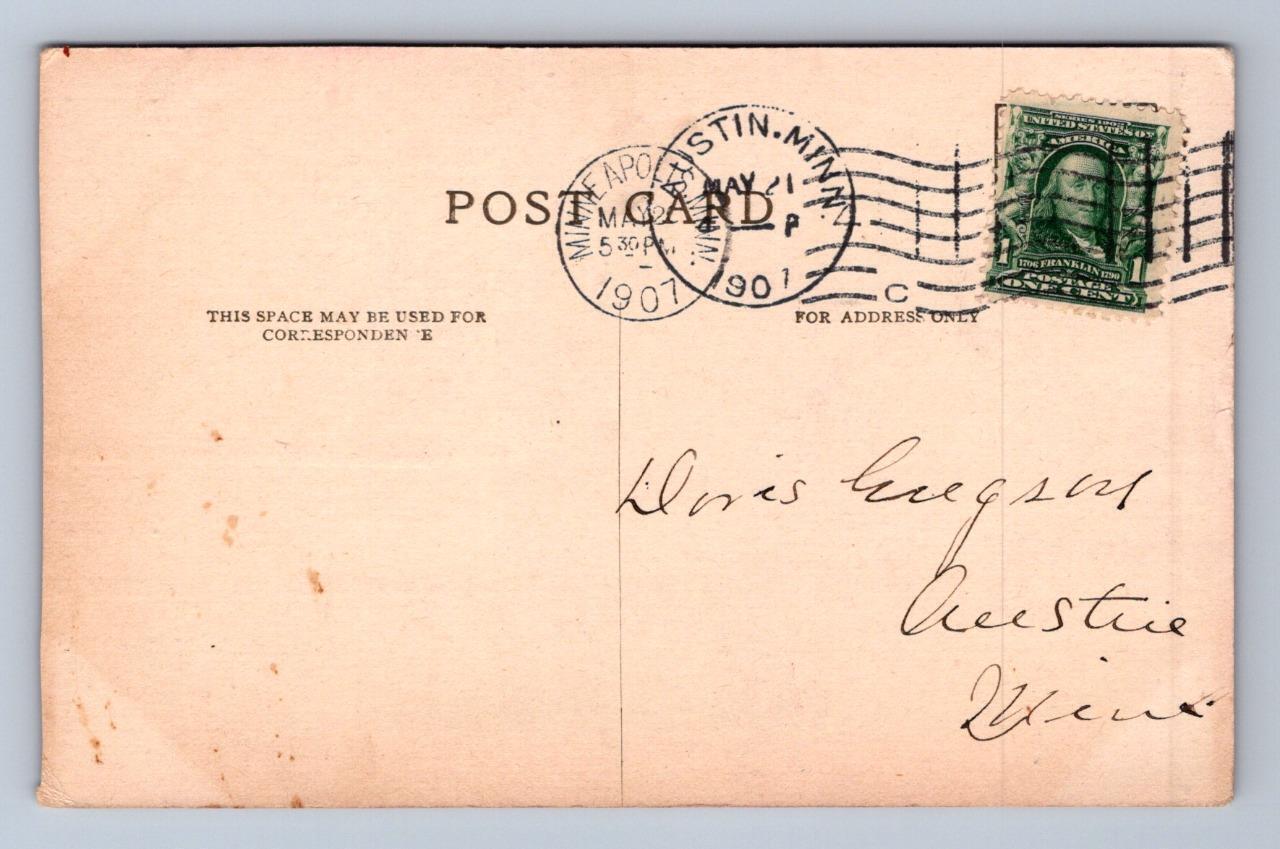 POST CARD
MINNEAPOLIS, MINN.
MAY 2
5 30 PM
1907
AUSTIN. MINN.
MAY 21
P
1907
C
SERIES 1902
UNITED STATES OF
AMERICA
1706 FRANKLIN 1790
1 POSTAGE 1
ONE CENT
THIS SPACE MAY BE USED FOR
CORRESPONDENCE
FOR ADDRESS ONLY
Doris Gregson
Austin
Minn